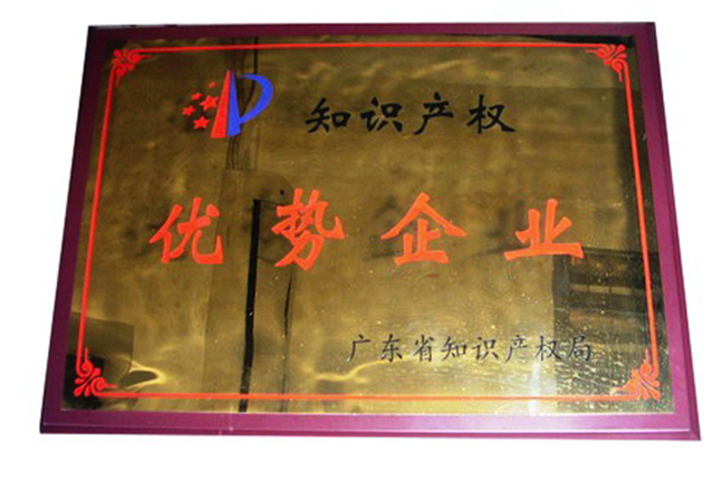 知识产权
优势企业
广东省知识产权局